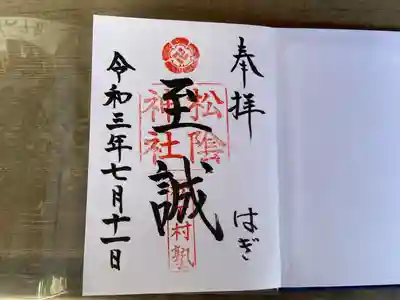 奉拝
はぎ
至誠
松陰
神社
村塾
令和三年七月十一日